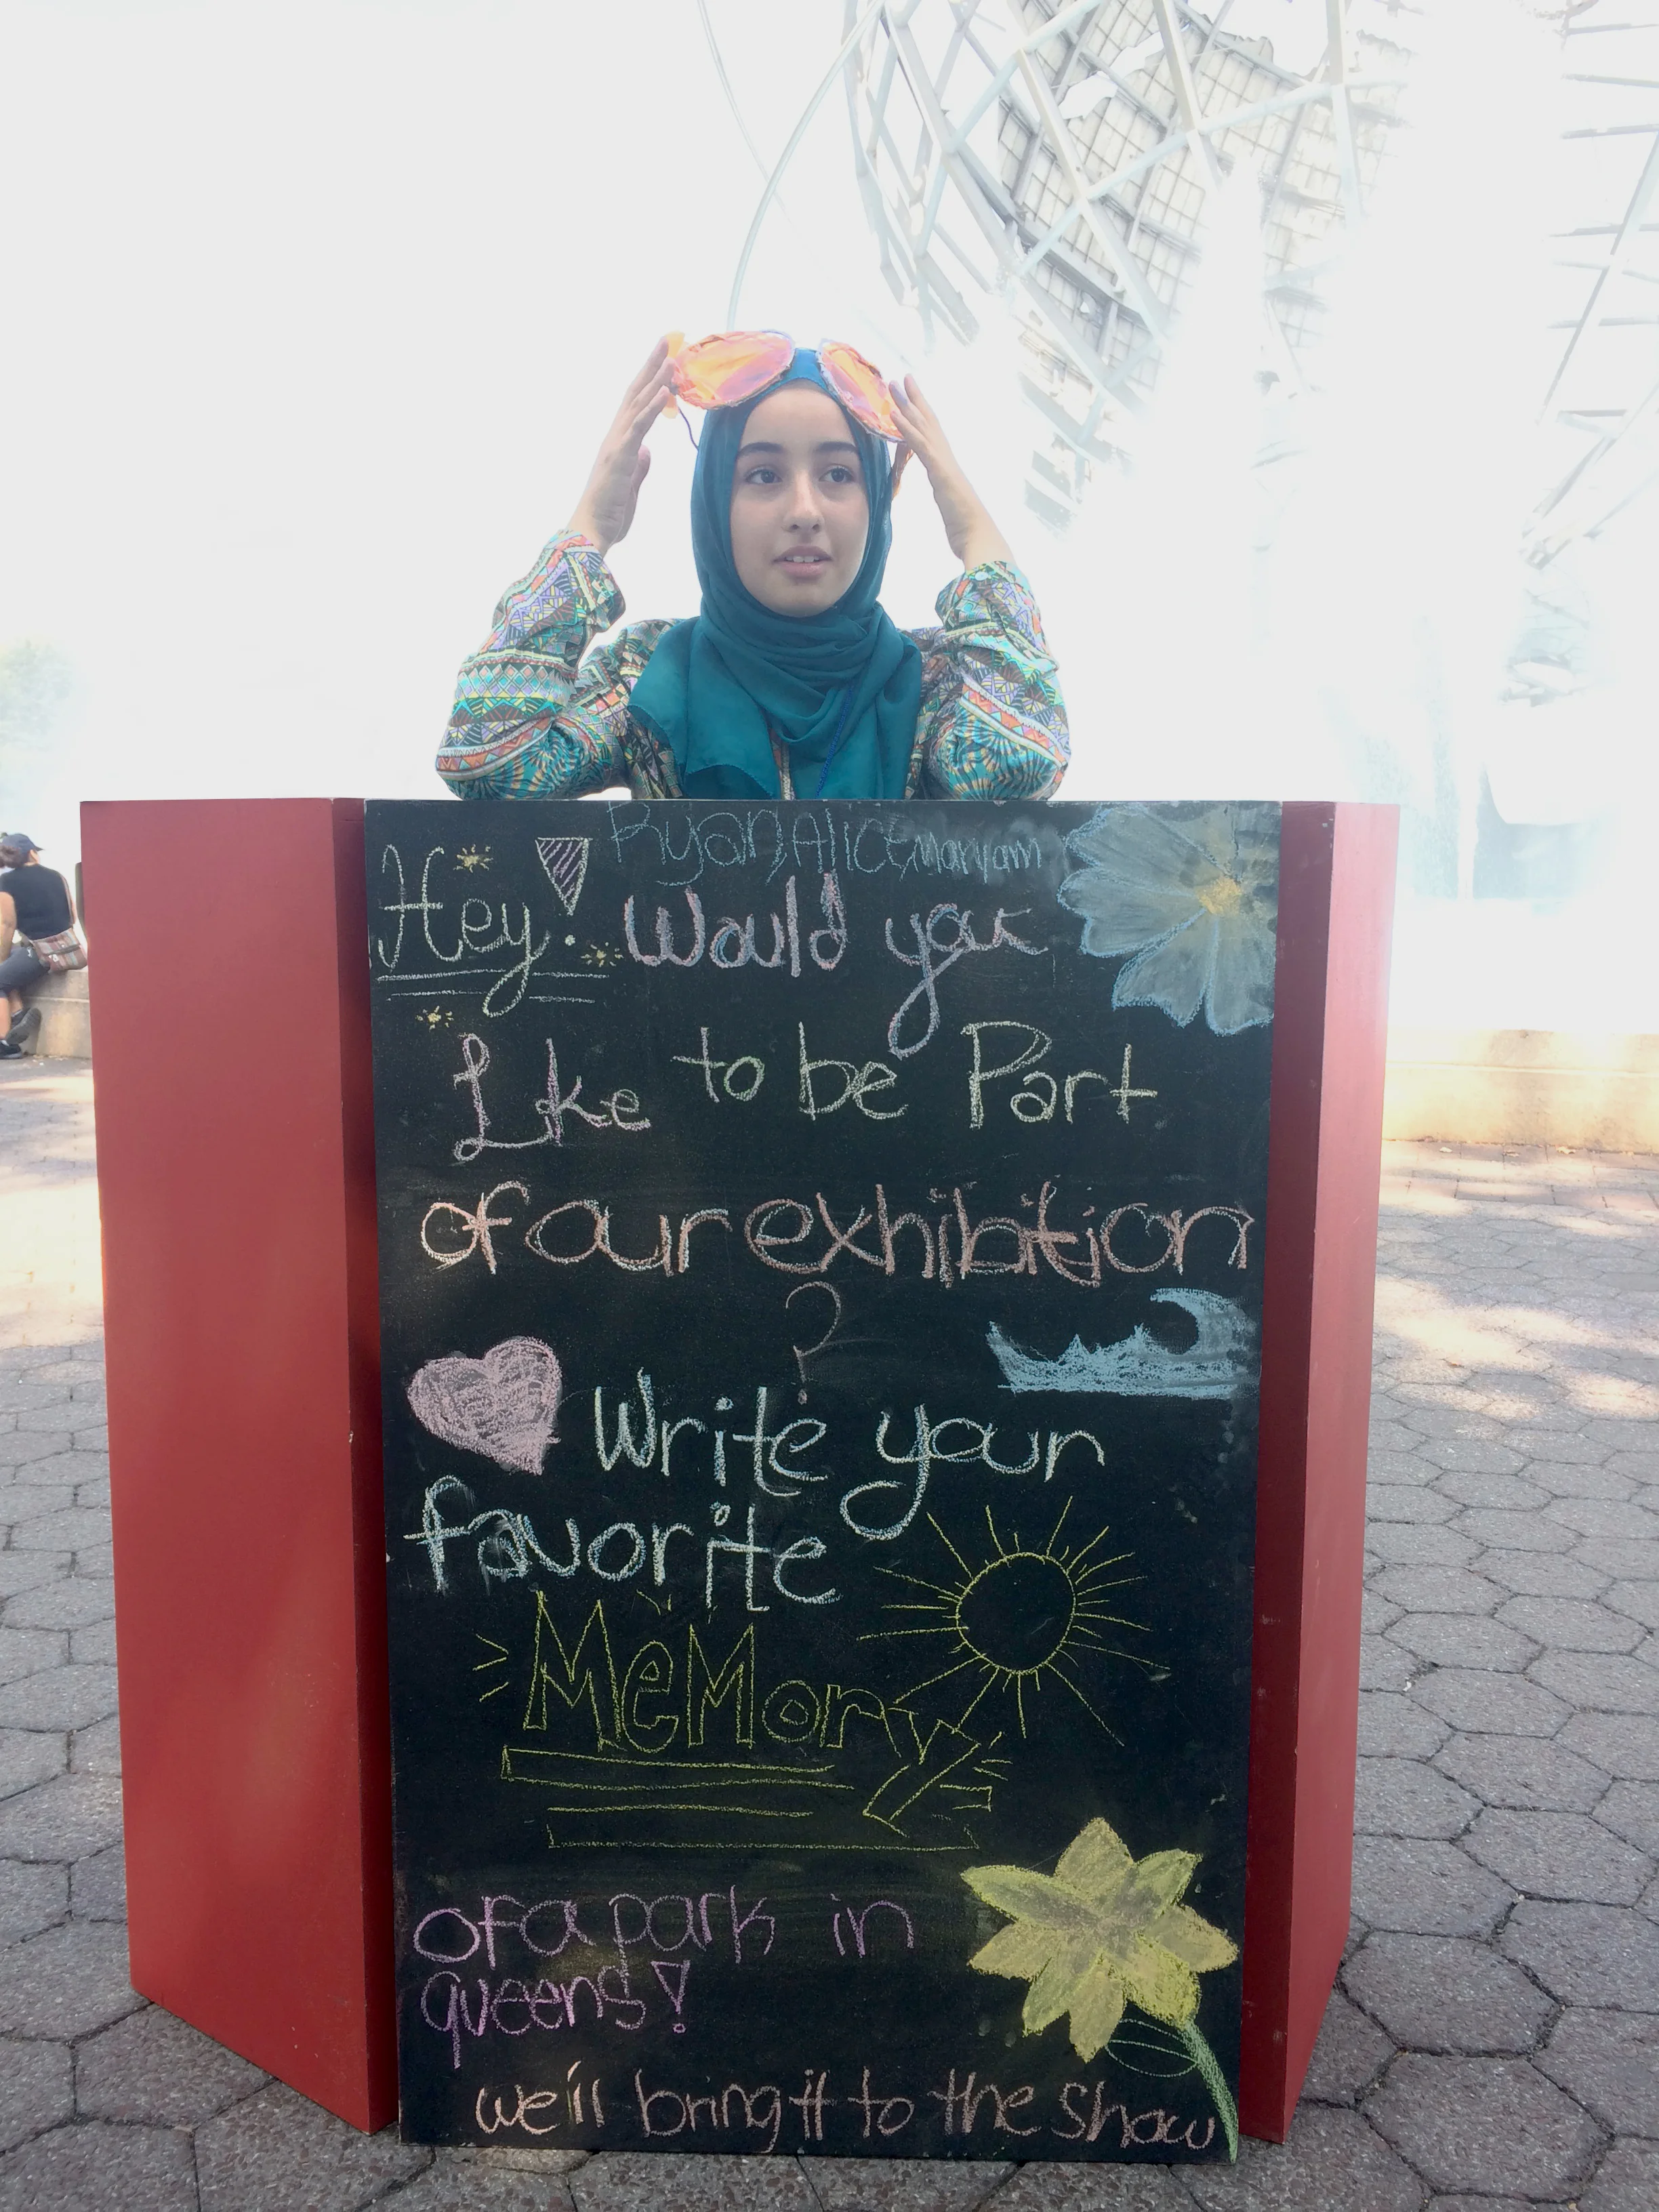 Ryan, Alice, Maryam
Hey! Would you
Like to be Part
of our exhibition
?
Write your
favorite
MeMory
of a park in
queens!
we'll bring it to the show